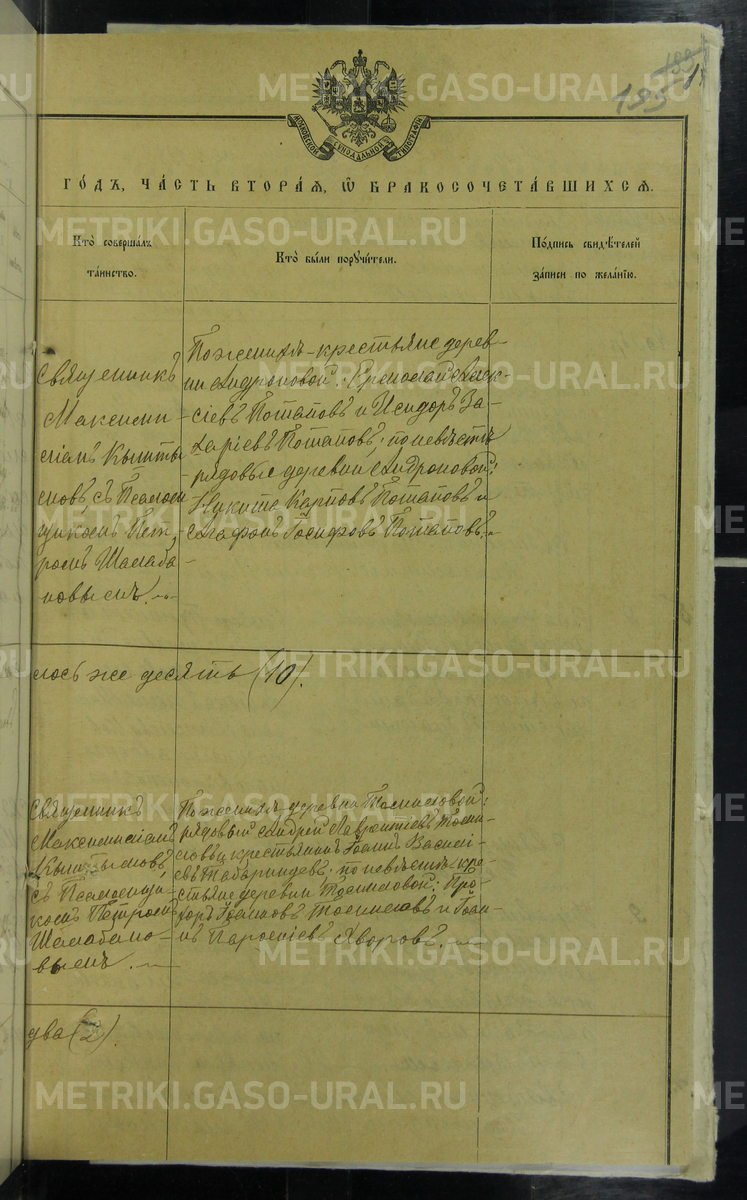 183
185
МОСКОВСКОЙ СѴНОДАЛЬНОЙ ТИПОГРАФІИ
ГОДЪ, ЧАСТЬ ВТОРАЯ, Ѿ БРАКОСОЧЕТАВШИХСЯ.
Кто совершалъ
таинство.
Кто были поручители.
Подпись свидѣтелей
записи по желанію.
Священникъ
Максими
ліанъ Кышты
мовъ, съ Псаломщ
щикомъ Пет
ромъ Шалаба
новымъ.
По женихѣ – крестьяне дерев-
ни Андроновой: Ермолай Алек-
сіевъ Потаповъ и Исидоръ За-
харіевъ Потаповъ; по невѣстѣ
рядовые деревни Андроновой:
Никита Карповъ Потаповъ и
Агафонъ Іосифовъ Потаповъ.
лось же десять (10).
Священникъ
Максимиліанъ
Кыштымовъ,
съ Псаломщи-
комъ Петромъ
Шалабано-
вымъ.
По женихѣ деревни Томиловой:
рядовый Андрей Лаврентіевъ Томи-
ловъ и крестьянинъ Іоаннъ Василі-
евъ Табаринцевъ; по невѣстѣ кре-
стьяне деревни Томиловой: Про-
хоръ Іоанновъ Томиловъ и Іоан-
нъ Яворовъ.
два (2).
METRIKI.GASO-URAL.RU